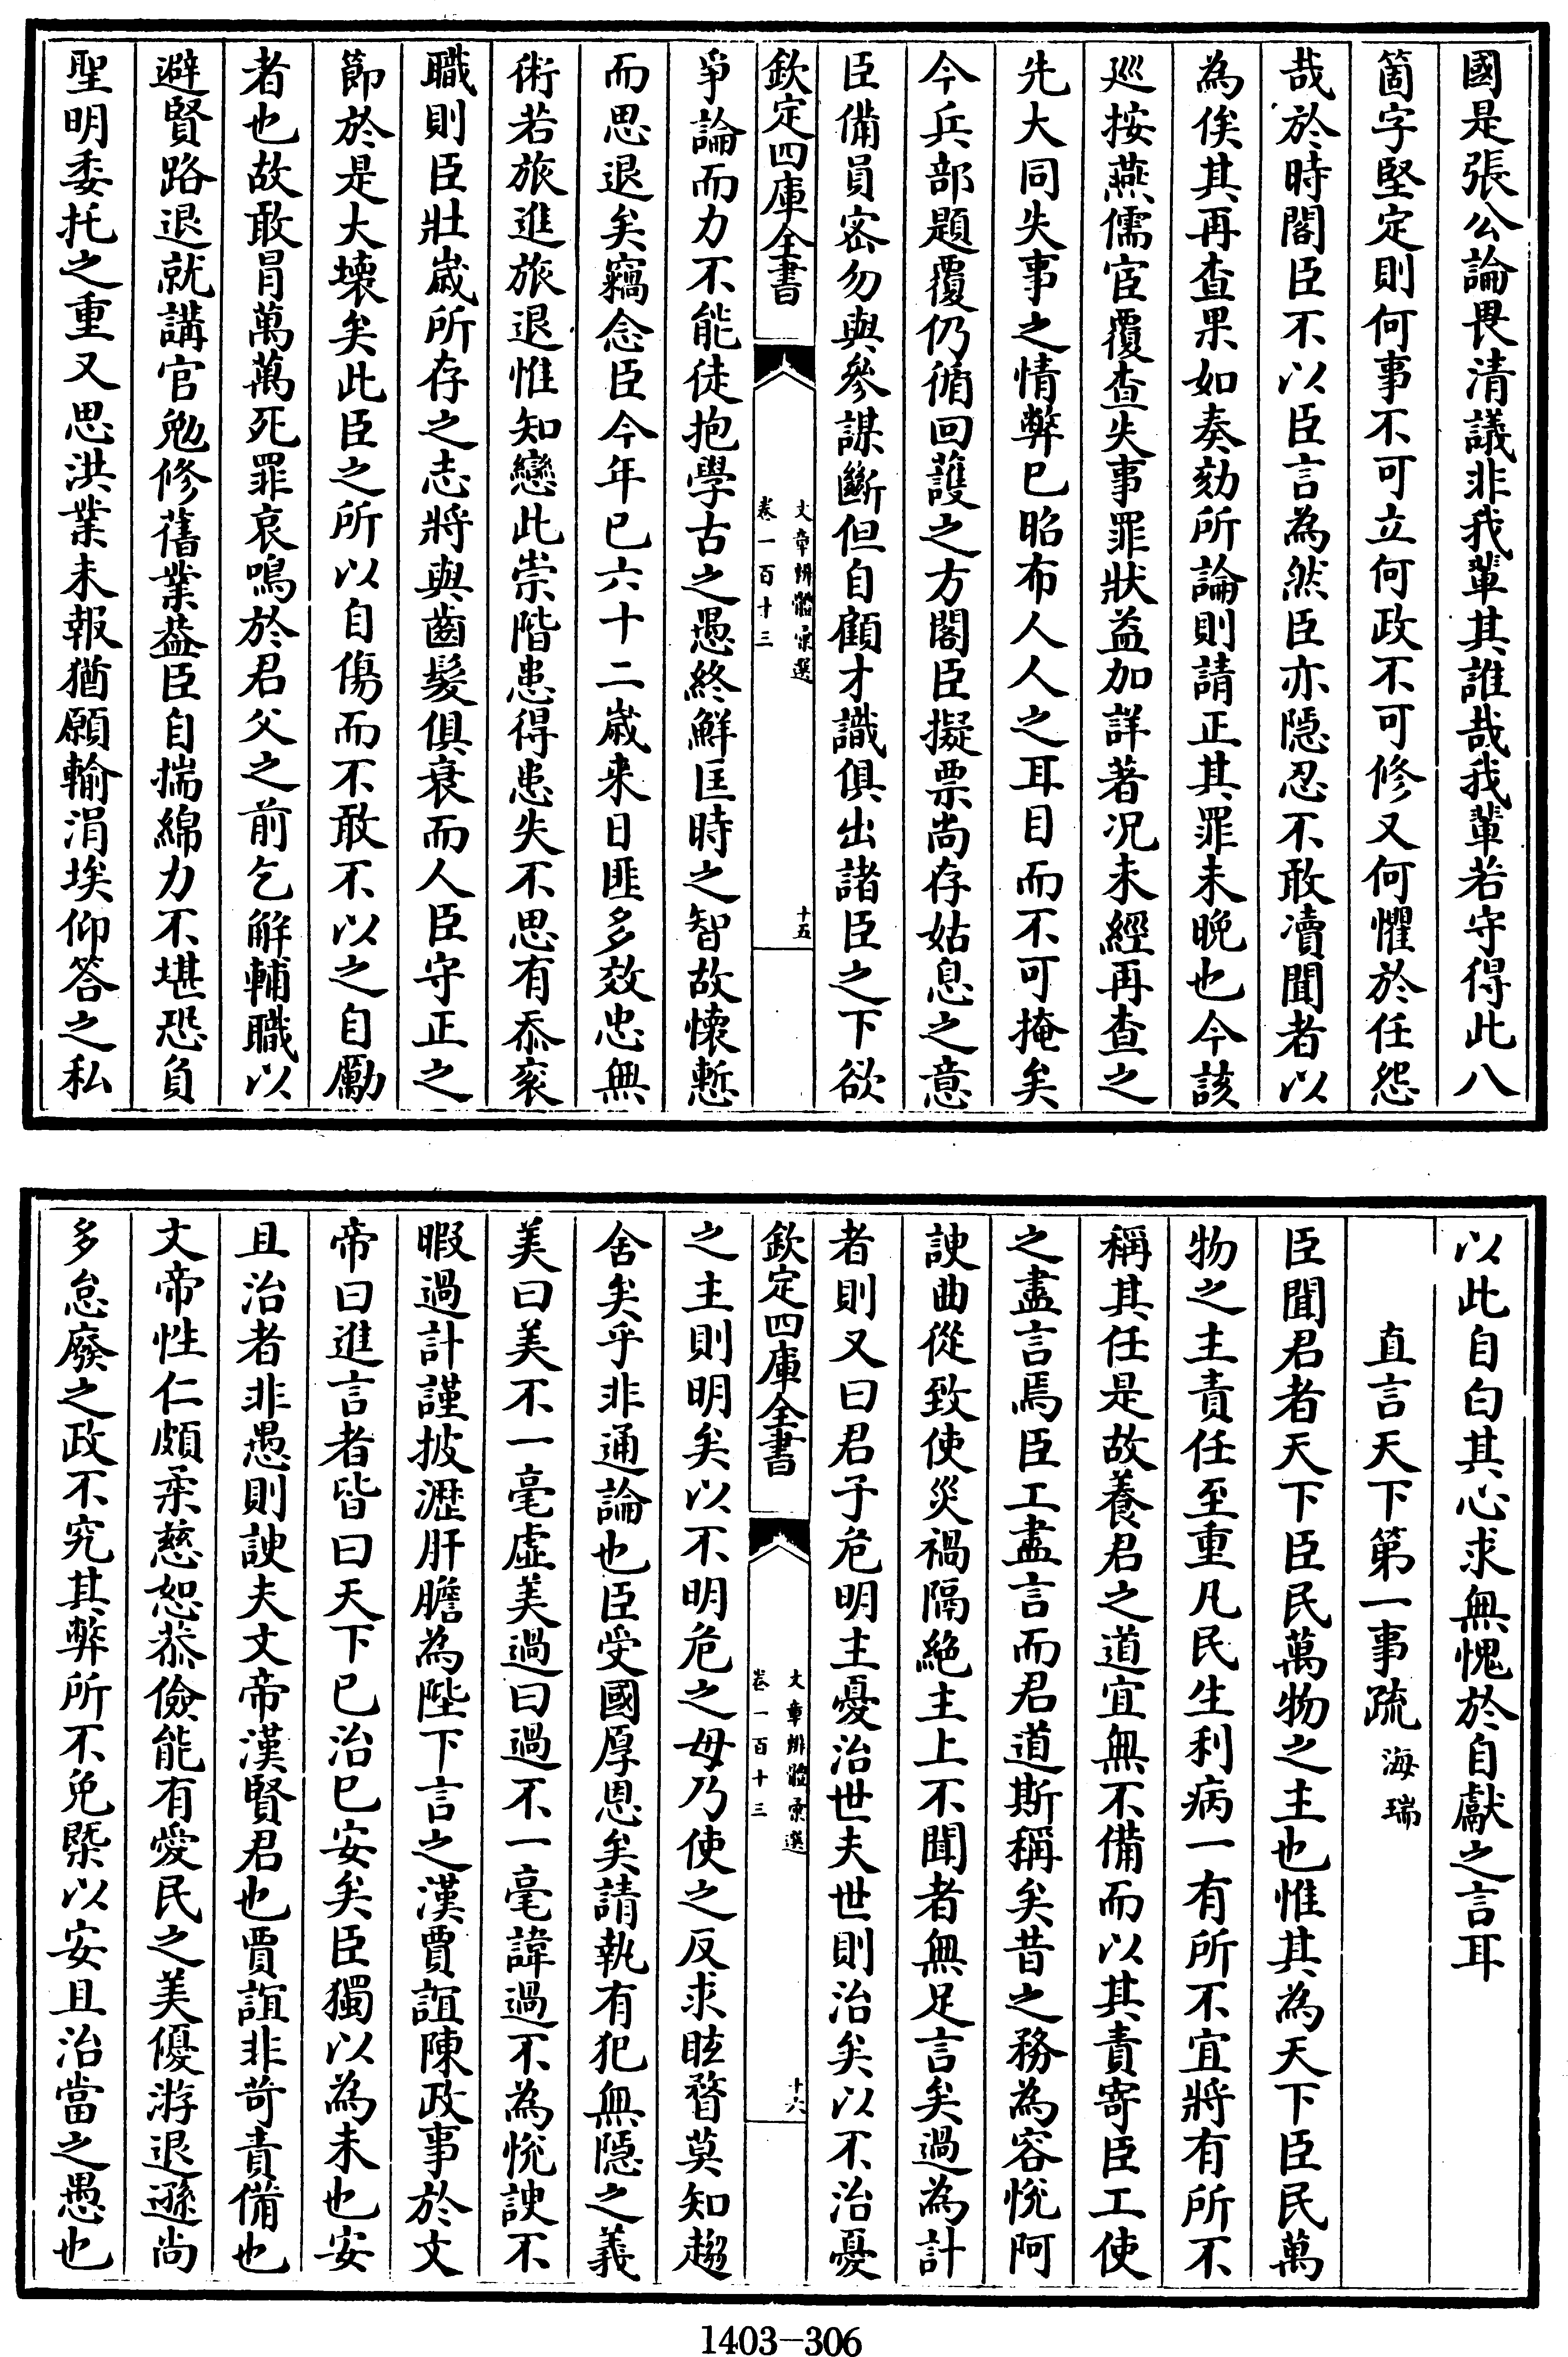 國是張公論畏清議非我輩其誰哉我輩若守得此八
箇字堅定則何事不可立何政不可修又何懼於任怨
哉於時閣臣不以臣言為然臣亦隱忍不敢瀆聞者以
為俟其再查果如奏劾所論則請正其罪未晚也今該
巡按燕儒宦覆查失事罪狀益加詳著况未經再查之
先大同失事之情弊已昭布人人之耳目而不可掩矣
今兵部題覆仍循回護之方閣臣擬票尚存姑息之意
臣備員密勿與參謀斷但自顧才識俱出諸臣之下欲
欽定四庫全書
文章辨體彚選
卷一百十三
十五
爭論而力不能徒抱學古之愚終鮮匡時之智故懐慙
而思退矣竊念臣今年已六十二嵗来日匪多效忠無
術若旅進旅退惟知戀此崇階患得患失不思有忝衮
職則臣壯嵗所存之志將與齒髮俱衰而人臣守正之
節於是大壊矣此臣之所以自傷而不敢不以之自勵
者也故敢冐萬萬死罪哀鳴於君父之前乞解輔職以
避賢路退就講官勉修舊業葢臣自揣綿力不堪恐負
聖明委托之重又思洪業未報猶願輸涓埃仰答之私
以此自白其心求無愧於自獻之言耳
直言天下第一事疏 海瑞
臣聞君者天下臣民萬物之主也惟其為天下臣民萬
物之主責任至重凡民生利病一有所不宜將有所不
稱其任是故養君之道宜無不備而以其責寄臣工使
之盡言焉臣工盡言而君道斯稱矣昔之務為容悅阿
諛曲從致使災禍隔絶主上不聞者無足言矣過為計
者則又曰君子危明主憂治世夫世則治矣以不治憂
欽定四庫全書
文章辨體彚選
卷一百十三
十六
之主則明矣以不明危之毋乃使之反求眩瞀莫知趨
舍矣乎非通論也臣受國厚恩矣請執有犯無隱之義
美曰美不一毫虚美過曰過不一毫諱過不為悅諛不
暇過計謹披瀝肝膽為陛下言之漢賈誼陳政事於文
帝曰進言者皆曰天下已治已安矣臣獨以為未也安
且治者非愚則諛夫文帝漢賢君也賈誼非苛責備也
文帝性仁頗柔慈恕恭儉能有愛民之美優游退遜尚
多怠廢之政不究其弊所不免槩以安且治當之愚也
1403-306